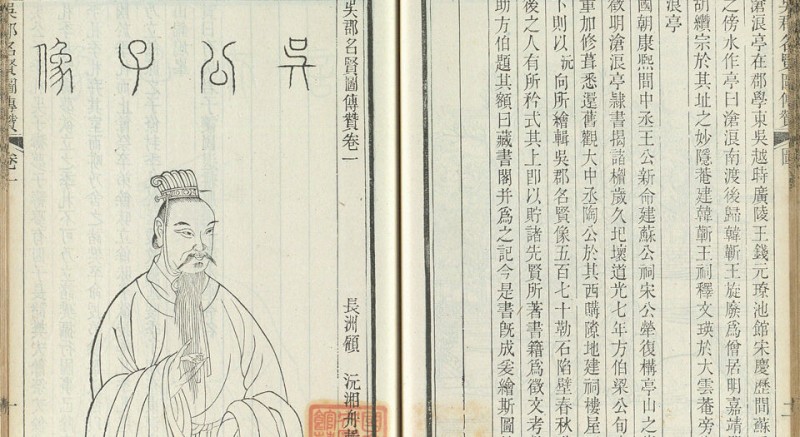 吳郡名賢圖傳贊
滄浪亭在郡學東吳越時廣陵王錢元璙池館宋慶歷間蘇
之傍水作亭曰滄浪南渡後歸韓蘄王旋廢爲僧居明嘉靖
胡纘宗於其址之妙隱菴建韓蘄王祠釋文瑛於大雲菴旁
浪亭
國朝康熙間中丞王公新命建蘇公祠宋公犖復構亭山之
徵明滄浪亭隸書揭諸楣歲久圯壞道光七年方伯梁公旬
重加修葺悉還舊觀大中丞陶公於其西購隙地建祠樓屋
下則以沅向所繪輯吳郡名賢像五百七十勒石陷壁春秋
後之人有所矜式其上卽以貯諸先賢所著書籍爲徵文考
助方伯題其額曰藏書閣并爲之記今是書旣成爰繪斯圖
吳郡名賢圖傳贊卷一
長洲顧 沅湘舟
吳公子像
吳郡名賢圖傳贊 卷一